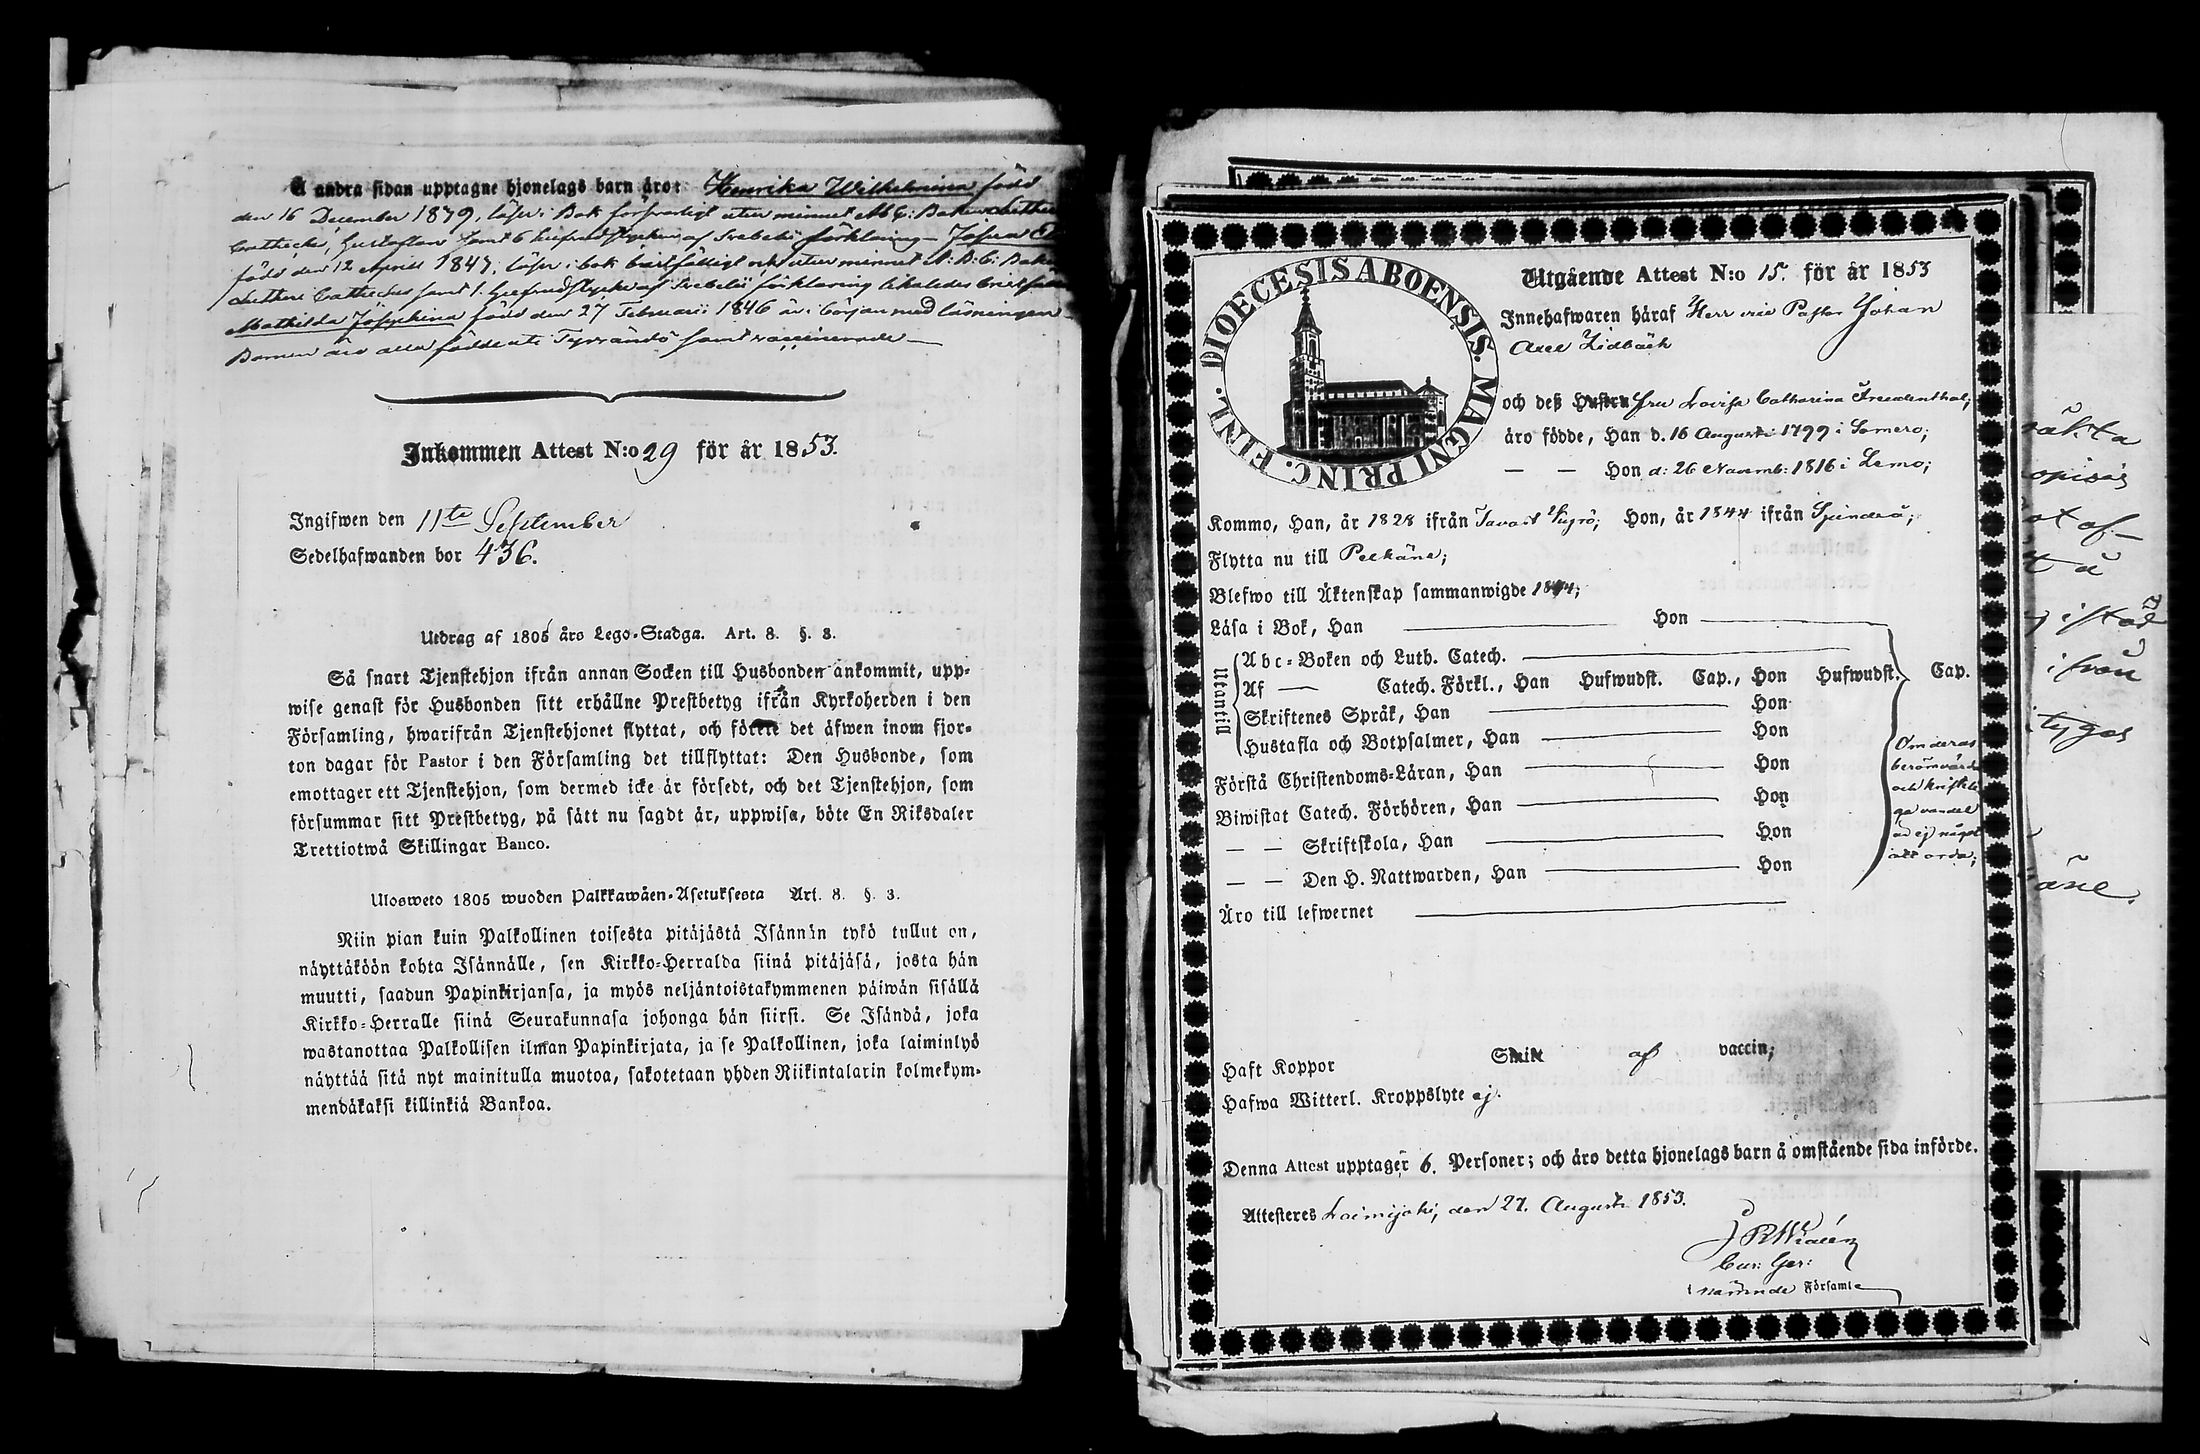 Å andra sidan upptagne hjonelags barn äro: Henrika Wilhelmina född
den 16 December 1839, läser i Bok försvarligt utur minnet Abc: Boken Luthers
Cathechi, Hustaflan samt 6 hufvudstycken af Svebelii förklaring –
född den 12 April 1843, läser i bok bristfälligt och utur minnet A: B: C: Boken
Lutheri Cathechis samt 1. hufvudstycke af Svebelii förklaring likaledes
Mathilda Josephina född den 27 Februarii 1846 är i början med läsningen
Barnen äro alla födde uti samt vaccinerade —
Inkommen Attest N:o 29 för år 1853.
Ingifwen den 11te September
Sedelhafwanden bor 436.
Utdrag af 1805 års Lego-Stadga. Art. 8. §. 3.
Så snart Tjenstehjon ifrån annan Socken till Husbonden ankommit, upp-
wise genast för Husbonden sitt erhållne Prestbetyg ifrån Kyrkoherden i den
Församling, hwarifrån Tjenstehjonet flyttat, och förete det äfwen inom fjor-
ton dagar för Pastor i den Församling det tillflyttat: Den Husbonde, som
emottager ett Tjenstehjon, som dermed icke är försedt, och det Tjenstehjon, som
försummar sitt Prestbetyg, på sätt nu sagdt är, uppwisa, böte En Riksdaler
Trettiotwå Skillingar Banco.
Ulosweto 1805 wuoden Palkkawäen-Asetuksesta Art. 8. §. 3.
Niin pian kuin Palkollinen toisesta pitäjästä Isännän tykö tullut on,
näyttäköön kohta Isännälle, sen Kirkko-Herralda siinä pitäjäsä, josta hän
muutti, saadun Papinkirjansa, ja myös neljäntoistakymmenen päiwän sisällä
Kirkko-Herralle siinä Seurakunnasa johonga hän siirsi. Se Isändä, joka
wastanottaa Palkollisen ilman Papinkirjata, ja se Palkollinen, joka laiminlyö
näyttää sitä nyt mainitulla muotoa, sakotetaan yhden Riikintalarin kolmekym-
mendäkaksi killinkiä Bankoa.
DIOECESIS ABOENSIS. MAGNI PRINC. FINL.
Utgående Attest N:o 15. för år 1853
Innehafwaren häraf Herr vice Pastor Johan
Axel Lidbäck
och deß Hustru fru Lovisa Catharina Freudenthal,
äro födde, Han d. 16 Augusti 1799 i Somero;
— — Hon d: 26 Novemb: 1816 i Lemo;
Kommo, Han, år 1828 ifrån Tavast Kyrö; Hon, år 1844 ifrån Sjundeå;
Flytta nu till Pelkäne;
Blefwo till Äktenskap sammanwigde 1844;
Läsa i Bok, Han — Hon —
Utantill
Abc-Boken och Luth. Catech. —
Af — Catech. Förkl., Han Hufwudst. Cap., Hon Hufwudst. Cap.
Skriftenes Språk, Han — Hon
Hustafla och Botpsalmer, Han — Hon
Förstå Christendoms-Läran, Han — Hon
Biwistat Catech. Förhören, Han — Hon
— — Skriftskola, Han — Hon
— — Den H. Nattwarden, Han — Hon
Om deras
berömvärda
och kristeli
ga vandel
är ej något
att orda;
Äro till lefwernet —
Haft Koppor af vaccin;
Hafwa Witterl. Kroppslyte ej.
Denna Attest upptager 6. Personer; och äro detta hjonelags barn å omstående sida införde.
Attesteres Loimijoki, den 27. Augusti 1853.
Cur: Ger:
nämnde Församl
ifrån